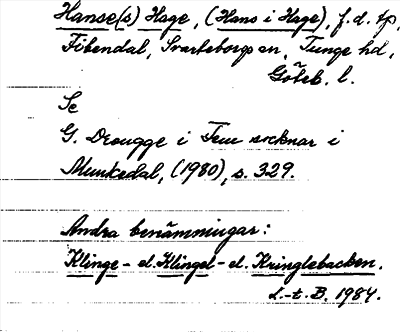 Hanse(s) Hage, (Hans i Hage), f. d. tp,
Fibendal, Svarteborgs sn, Tunge hd,
Göteb. l.
Se
G. Drougge i Fem socknar i
Munkedal, (1980), s. 329.
Andra benämningar:
Klinge- el. Klingel- el. Kringlebacken.
L.-t. B. 1984.